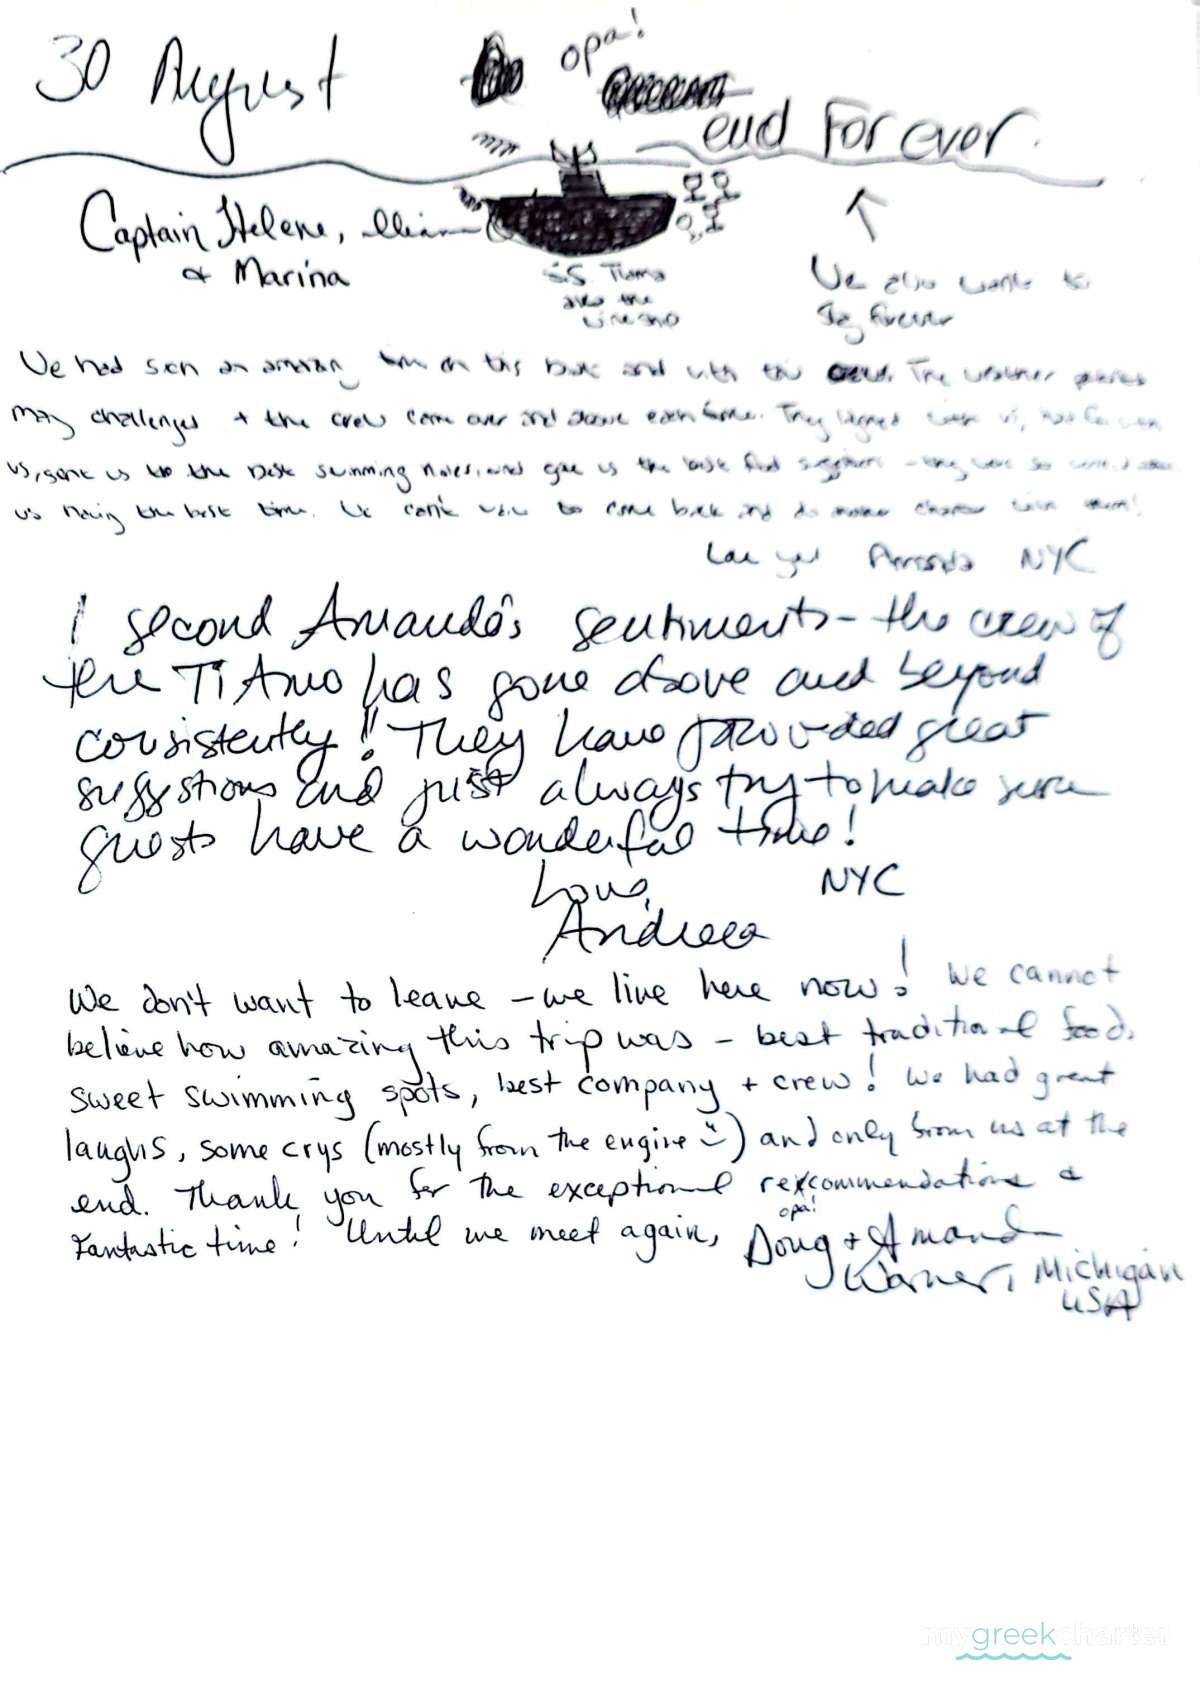 30 August
opa!
end Forever.
Captain Helene,
& Marina
S.S. Tiamo
aka the
We also want to
Stay forever
We had such an amazing time on this boat and with this crew. The weather posed
many challenges + the crew came over and above each time. They
us, sent us to the best swimming holes, and gave us the best food suggestions - they were so
us having the best time. We can't wait to come back and do another charter with them!
Love you Amanda NYC
I second Amanda's sentiments - the crew of
the Ti Amo has gone above and beyond
consistently! They have provided great
suggestions and just always try to make sure
guests have a wonderful time!
Love, NYC
Andreea
We don't want to leave - we live here now! We cannot
believe how amazing this trip was - best traditional food,
sweet swimming spots, best company + crew! We had great
laughs, some crys (mostly from the engine ) and only from us at the
end. Thank you for the exceptional reccommendations &
Fantastic time! Until we meet again, opa! Doug + Amanda
Warner, Michigan
USA
mygreekcharter